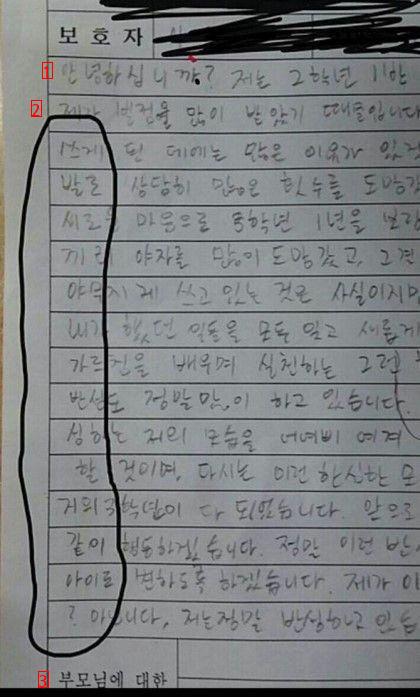 보호자
1 안녕하십니까? 저는 2학년 11반
2 제가 벌점을 많이 받았기 때문입니다
쓰게 된 데에는 많은 이유가 있겠
발로 상당히 많은 횟수를 도망갔
씨로운 마음으로 3학년 1년을 보람
끼리 야자를 많이 도망갔고, 그건
야무지게 쓰고 있는 것은 사실이지만
내가 했던 일들을 모두 잊고 새롭게
가르친을 배우며 실천하는 그런
반성도 정말 많이 하고 있습니다
성하는 저의 모습을 어여삐 여겨
할 것이며, 다시는 이런 한심한 모
거의 3학년이 다 되었습니다. 앞으로
같이 행동하겠습니다. 정말 이런 반
아이로 변하도록 하겠습니다. 제가 이
? 아닙니다, 저는 정말 반성하고 있습
3 부모님에 대한